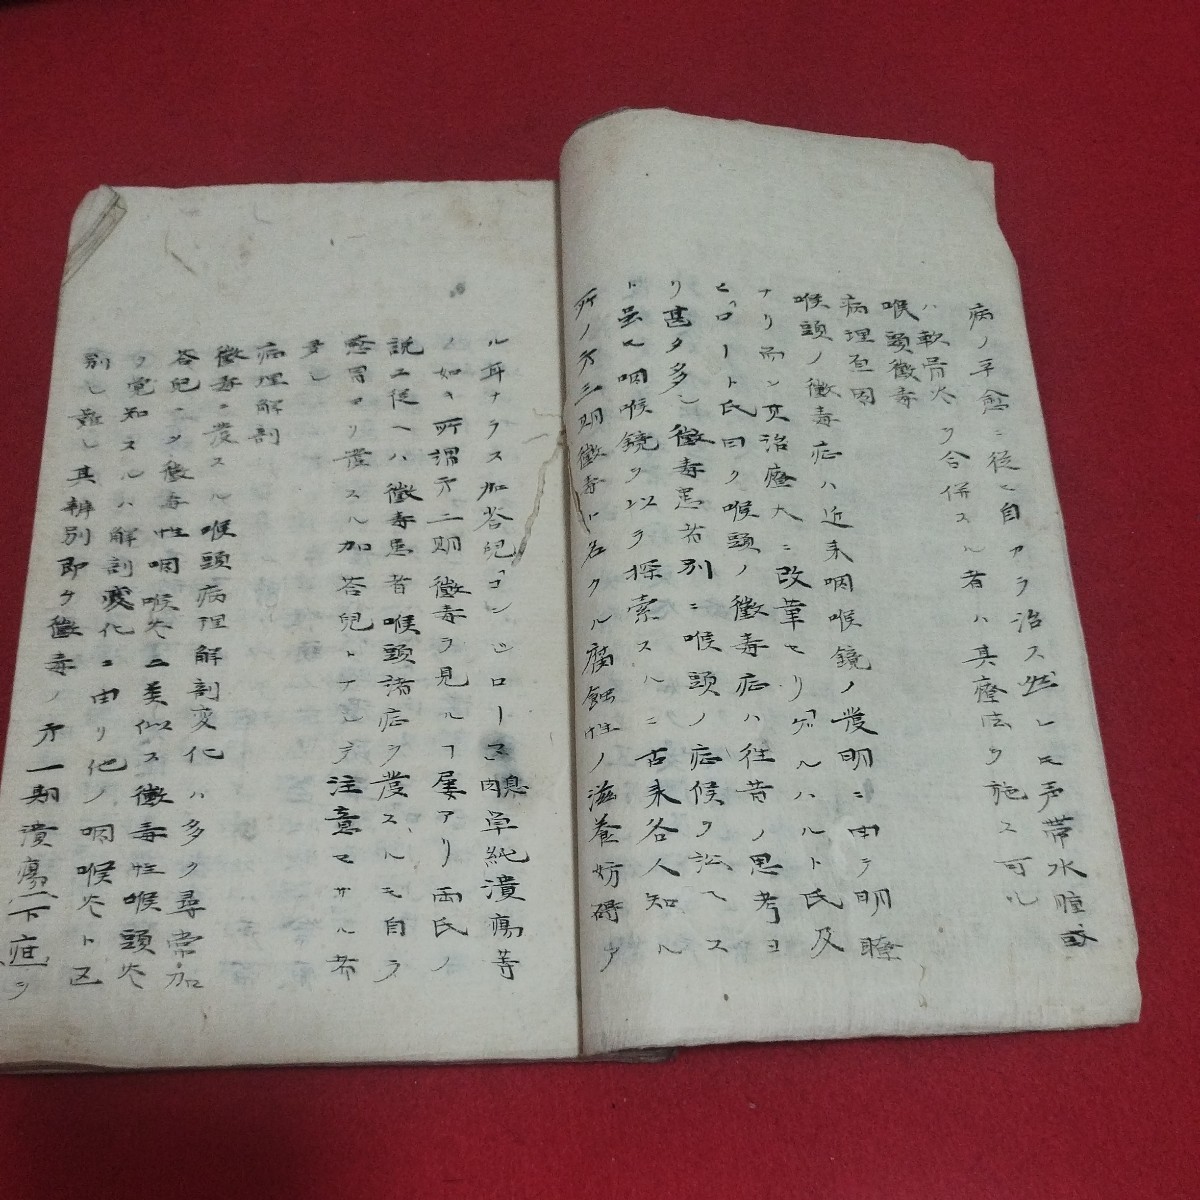 病ノ平愈ニ従ヒ自カラ治ス然レヒ声帯水腫或
ハ軟骨炎ヲ合併スル者ハ其療法ヲ施ス可シ
喉頭徴毒
病理直因
喉頭ノ徴毒症ハ近来咽喉鏡ノ發明ニ由テ明瞭
ナリ而ソ其治療大ニ改革セリ「ゲルハルト氏及
ヒ「ロート氏曰ク喉頭ノ徴毒症ハ往昔ノ思考ヨ
リ甚タ多シ徴毒患者別ニ喉頭ノ症候ヲ訟ヘス
ト虽モ咽喉鏡ヲ以テ探索スルニ古来各人知ル
所ノ才三期徴毒ト名クル腐蝕性ノ滋養妨碍ア
ル耳ナラス加答児「コンジローマ瘜肉単純潰瘍等
ノ如キ所謂才二期徴毒ヲ見ルヿ屡アリ両氏ノ
説ニ従ヘハ徴毒患者喉頭諸症ヲ發スルモ自ラ
感冒ヨリ發スル加答児トナシテ注意セサル者
多シ
病理解剖
徴毒ニ發スル喉頭病理解剖変化ハ多ク尋常加
答児ニソ徴毒性咽喉炎ニ類似ス徴毒性喉頭炎
ヲ覚知スルハ解剖変化ニ由リ他ノ咽喉炎ト区
別シ難シ其辨別即ケ徴毒ノ才一期潰瘍(下疳)ヲ